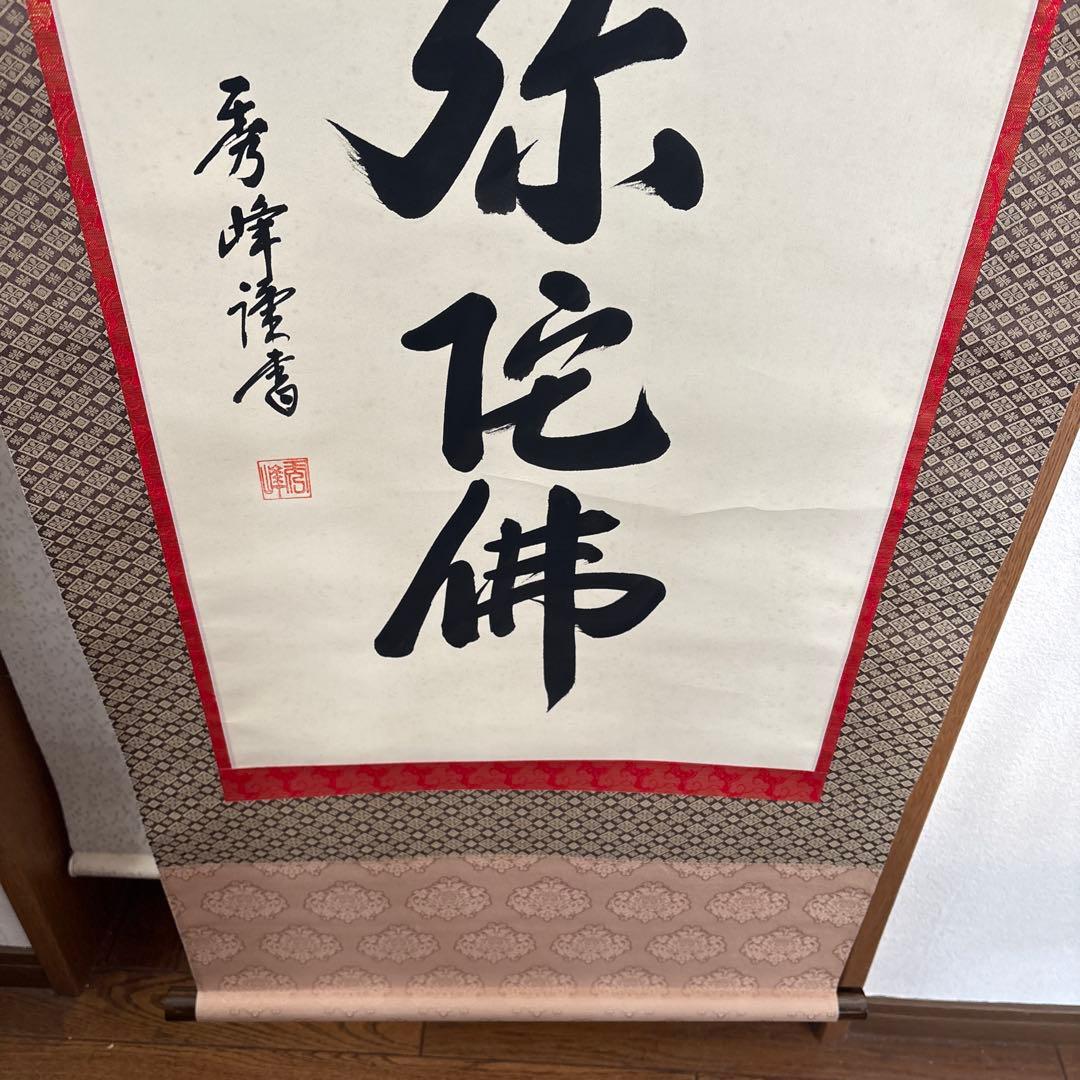 弥陀佛
秀峰謹書
秀峰